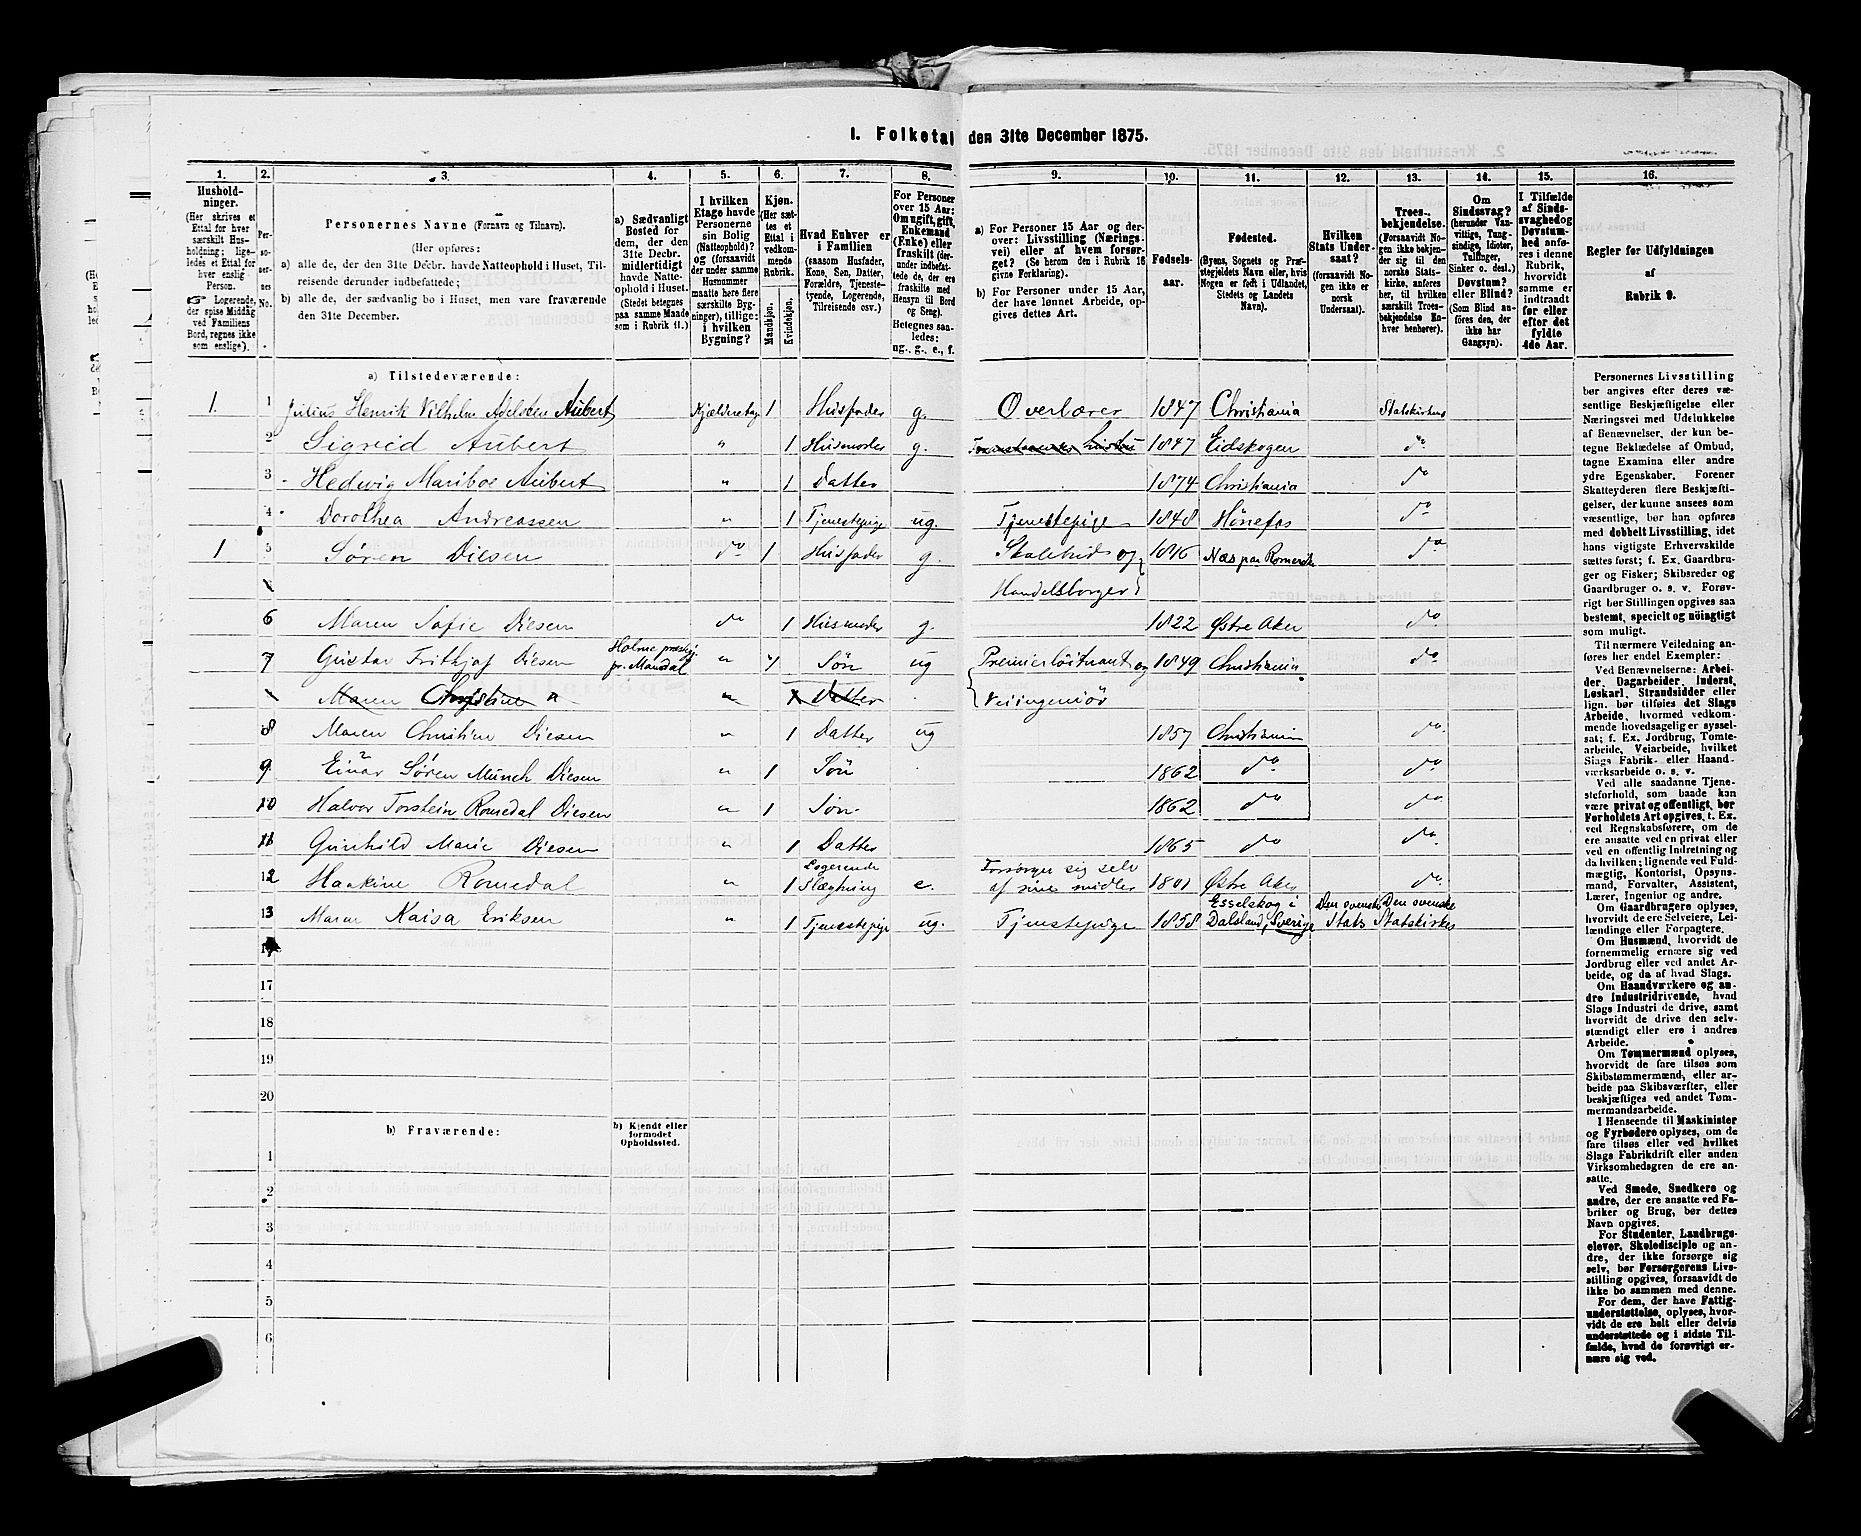 I. Folketal den 31te December 1875.
1. 2. 3. 4. 5. 6. 7. 8. 9. 10. 11. 12. 13. 14. 15. 16.
Husholdninger.
(Her skrives et
Ettal for hver
særskilt Husholdning;
ligeledes et Ettal for
hver enslig
Person.
☞ Logerende,
der spise Middag
ved Familiens
Bord, regnes ikke
som enslige).
Personernes No.
Personernes Navne (Fornavn og Tilnavn).
(Her opføres:
a) alle de, der den 31te Decbr. havde Natteophold i Huset, Tilreisende derunder indbefattede;
b) alle de, der sædvanlig bo i Huset, men vare fraværende
den 31te December.
a) Sædvanligt
Bosted for
dem, der den
31te Decbr.
midlertidigt
havde Natteophold i Huset.
(Stedet betegnes
paa samme Maade
som i Rubrik 11.)
I hvilken
Etage havde
Personerne
sin Bolig
(Natteophold)?
og (forsaavidt
der under samme
Husnummer
maatte høre flere
særskilte Bygninger), tillige:
i hvilken
Bygning?
Kjøn.
(Her sættes et
Ettal i
vedkommende
Rubrik.
Mandkjøn.
Kvindekjøn.
Hvad Enhver er
i Familien
(saasom Husfader,
Kone, Søn, Datter,
Forældre, Tjenestetyende, Logerende,
Tilreisende osv.)
For Personer
over 15 Aar:
Om ugift, gift,
Enkemand
(Enke) eller
fraskilt (derunder indbefattede de, der ere
fraskilte med
Hensyn til Bord
og Seng).
Betegnes saaledes:
ug., g., e., f.
a) For Personer 15 Aar og derover: Livsstilling (Næringsvei) eller af hvem forsørget? (Se herom den i Rubrik 16
givne Forklaring).
b) For Personer under 15 Aar,
der have lønnet Arbeide, opgives dettes Art.
Fødselsaar.
Fødested.
(Byens, Sognets og Præstegjeldets Navn eller, hvis
Nogen er født i Udlandet,
Stedets og Landets
Navn).
Hvilken
Stats Undersaat?
(forsaavidt Nogen ikke er
norsk
Undersaat).
Troesbekjendelse.
(Forsaavidt Nogen ikke hører
der sig til den
norske Statskirke, anføres
her, til hvilken
særskilt Troesbekjendelse Enhver henhører).
Om
Sindssvag?
(herunder Vanvittige, Tungsindige, Idioter,
Tullinger,
Sinker o. desl.)
Døvstum?
eller Blind?
(Som Blind anføres den, der
ikke har
Gangsyn).
I Tilfælde
af Sindssvaghed og
Døvstumhed anføres i denne
Rubrik,
hvorvidt
samme er
indtraadt
før eller
efter det
fyldte
4de Aar.
Regler før Udfyldningen
af
Rubrik 9.
a) Tilstedeværende:
1. 1 Julius Henrik Vilhelm Adelsten Aubert Kjælderetag 1 Husfader g. Overlærer 1847 Christiania Statskirken
2 Sigrid Aubert " 1 Husmoder g. 1847 Eidskogen do
3 Hedwig Mariboe Aubert " 1 Datter 1874 Christiania do
4 Dorothea Andreassen " 1 Tjenestepige ug. Tjenestepige 1848 Hönefos do
1 5 Søren Diesen do 1 Husfader g. og 1816 Næs paa Romerike do
Handelsborger
6 Maren Sofie Diesen do 1 Husmoder g. 1822 Østre Aker do
7 Gustav Frithjof Diesen Holme præstgj. pr. Mandal " 1 Søn ug Premierløitnant og 1849 Christiania do
Maren Christine " " 1 Datter Veiingeniör
8 Maren Christine Diesen " 1 Datter ug 1857 Christiania do
9 Einar Søren Munch Diesen " 1 Søn 1862 do do
10 Halvor Torstein Romedal Diesen " 1 Søn 1862 do do
11 Gunhild Marie Diesen " 1 Datter 1865 do do
12 Haakine Romedal " 1 Logerende Slægtning e. Forsørger sig selv af sine midler 1801 Østre Aker do
13 Maren Kaisa Eriksen " 1 Tjenestepige ug. Tjenstepige 1858 Esselskog i Dalsland, Sverige Den svenske Stats Den svenske Statskirkes
17
18
19
20
b) Fraværende:
b) Kjendt eller
formodet
Opholdssted.
1
2
3
4
5
6
Personernes Livsstilling
bør angives efter deres væsentlige Beskjæftigelse eller
Næringsvei med Udelukkelse
af Benævnelser, der kun betegne Beklædelse af Ombud,
tagne Examina eller andre
ydre Egenskaber. Forener
Skatteyderen flere Beskjæftigelser, der kunne ansees som
væsentlige, bør han opføres
med dobbelt Livsstilling, idet
hans vigtigste Erhvervskilde
sættes først; f. Ex. Gaardbruger og Fisker; Skibsreder og
Gaardbruger o. s. v. Forøvrigt bør Stillingen opgives saa
bestemt, specielt og nöiagtigt
som muligt.
Til nærmere Veiledning anføres her endel Exempler:
Ved Benævnelserne: Arbeider, Dagarbeider, Inderst,
Løskarl, Strandsidder eller
lign. bør tilføies det Slags
Arbeide, hvormed vedkommende hovedsagelig er sysselsat; f. Ex. Jordbrug, Tomtearbeide, Veiarbeide, hvilket
Slags Fabrik- eller Haandværksarbeide o. s. v.
Ved alle saadanne Tjenesteforhold, som baade kan
være privat og offentligt, bør
Forholdets Art opgives, t. Ex.
ved Regnskabsførere, om de
ere ansatte ved en privat eller
ved en offentlig Indretning og
da hvilken; lignende ved Fuldmægtig, Kontorist, Opsynsmand, Forvalter, Assistent,
Lærer, Ingeniør og andre.
Om Gaardbrugere oplyses,
hvorvidt de ere Selveiere, Leilændinge eller Forpagtere.
Om Husmænd, hvorvidt de
fornemmelig ernære sig ved
Jordbrug eller ved andet Arbeide, og da af hvad Slags.
Om Haandværkere og andre Industridrivende, hvad
Slags Industri de drive, samt
hvorvidt de drive den selvstændigt eller ere i andres
Arbeide.
Om Tømmermænd oplyses,
hvorvidt de fare tilsøs som
Skibstømmermænd, eller arbeide paa Skibsværfter, eller
beskjæftiges ved andet Tømmermandsarbeide.
I Henseende til Maskinister
og Fyrbødere oplyses, om de
fare tilsøs eller ved hvilket
Slags Fabrikdrift eller anden
Virksomhedsgren de ere ansatte.
Ved Smede, Snedkere og
andre, der ere ansatte ved Fabriker og Brug, bør dettes
Navn opgives.
For Studenter, Landbrugselever, Skoledisciple og andre, der ikke forsørge sig
selv, bør Forsørgerens Livsstilling opgives, forsaavidt de
ikke bo sammen med denne.
For dem, der have Fattigunderstøttelse, oplyses, hvorvidt de ere helt eller delvis
understøttede og i sidste Tilfælde, hvad de forøvrigt ernære sig ved.